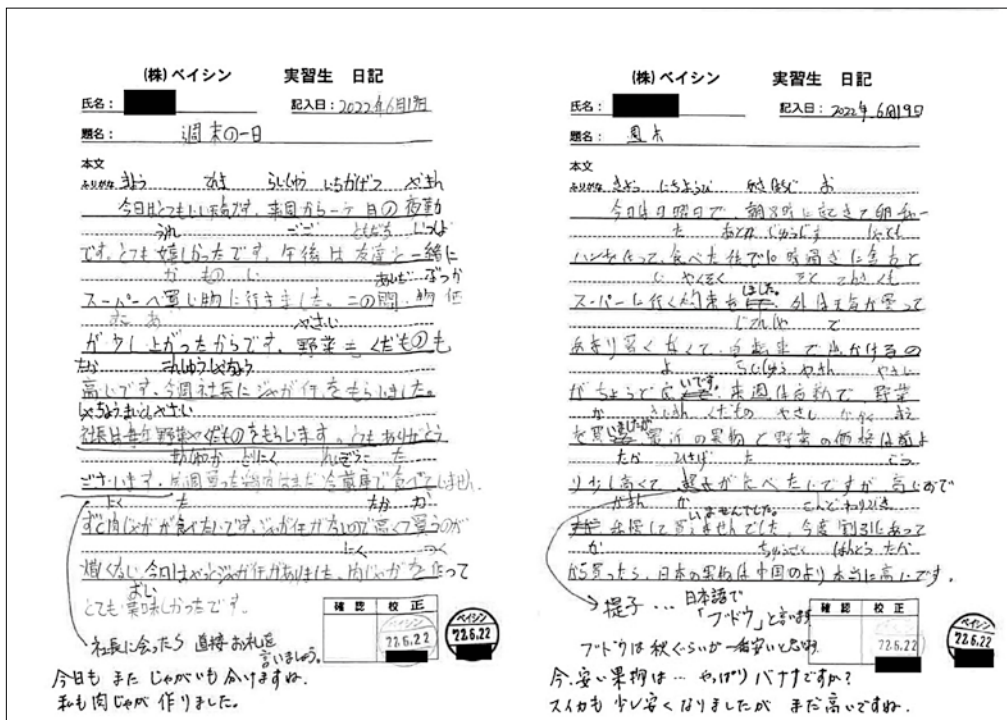 (株)ベイシン 実習生 日記
氏名：
記入日：2022年6月19日
題名： 週末の一日
本文
ふりがな きょう てんき らいしゅう いちかげつ やきん
今日はとてもいい天気です。来週から一ヶ月の夜勤
うれ ごご ともだち いっしょ
です。とても嬉しかったです。午後は友達と一緒に
か もの い あいだ ぶっか
スーパーへ買い物に行きました。この間、物価
すこ あ やさい
が少し上がったからです。野菜もくだものも
たか こんしゅうしゃちょう
高いです。今週社長にジャガイモをもらいました。
しゃちょうまいとしやさい
社長は毎年野菜やくだものをもらいます。とてもありがとう
ございます。先週買った鶏肉はまだ冷蔵庫で食べていません。
にく た たか か
ずっと肉じゃがが食べたいです。ジャガイモがないので高くて買うのが
にく つく
惜しくない。今日はやっとジャガイモがありました。肉じゃがを作って
おい
とても美味しかったです。
確認 校正
ベイシン
22.6.22
ベイシン
22.6.22
社長に会ったら 直接お礼を
言いましょう。
今日も また じゃがいも 分けますね。
私も肉じゃが 作りました。
(株)ベイシン 実習生 日記
氏名：
記入日：2022年6月19日
題名： 週末
本文
ふりがな きょう にちようび あさはちじ お
今日は日曜日で、朝8時に起きて卵チャー
た あと じゅうじす
ハンを作って、食べた後で10時過ぎに
い やくそく そと てんき くも
スーパーに行く約束をしました。外は天気が曇って
じてんしゃ で
あまり暑くなくて、自転車で出かけるの
よ らいしゅう やきん やさい
がちょうど良いです。来週は夜勤で、野菜
か さいきん くだもの やさい かかく まえ
を買いましたが最近の果物と野菜の価格は前よ
たか た
り少し高くて、提子が食べたいですが高いので
がまん か いませんでした。こんどわりびき
我慢して買いませんでした。今度割引にあって
か ちゅうごく ほんとう たか
から買ったら、日本の果物は中国のより本当に高いです。
提子… 日本語で
「ブドウ」と言います
ブドウは秋ぐらいが一番安いと思う。
確認 校正
ベイシン
22.6.22
ベイシン
22.6.22
今、安い果物は… やっぱり バナナですか？
スイカも 少し安くなりましたが まだ高いですね。